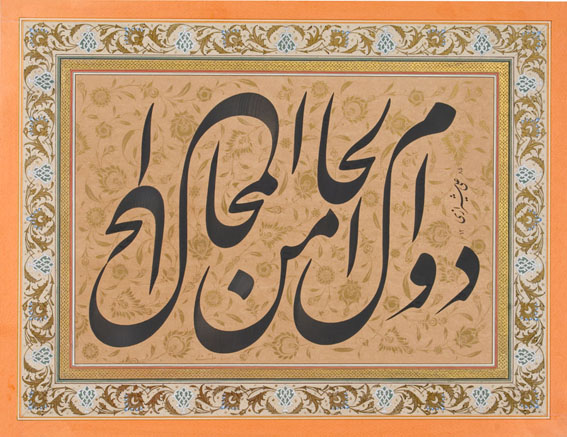 دوام الحال من المحال
علی شیرازی